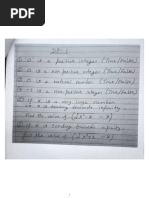 0 is a positive integer (True/False)
0 is a non positive integer (True/False)
0 is a natural number (True/False)
-1 is a non-positive integer (True/False)
If x is a very large number
x tending towards infinity.
Find the value of
If x is tending towards infinity,
find the value of